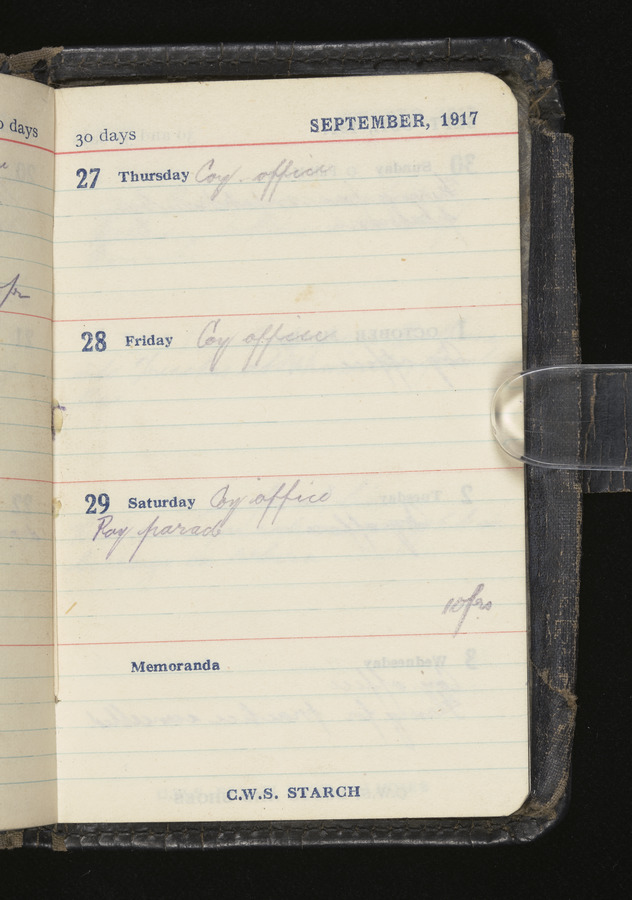 days
30 days
SEPTEMBER, 1917
27 Thursday Coy. office
28 Friday Coy office
29 Saturday Coy office
Pay parade
10frs
Memoranda
C.W.S. STARCH